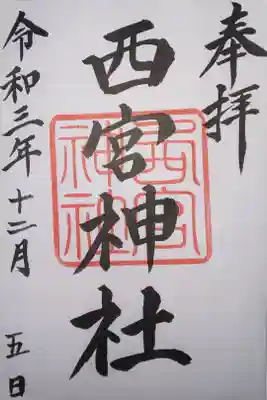 奉拝
西宮神社
西宮神社
令和三年十二月五日